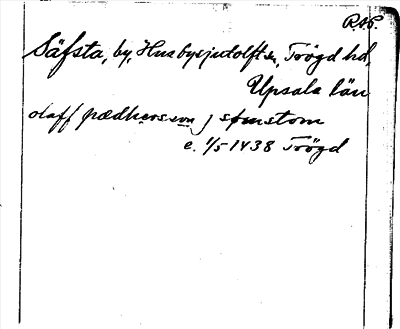 R.A.P.
Säfsta, by, Husbysjutolft sn, Trögd hd,
Upsala län
olaff pædhersson j sæmstom
e. 1/5 1438 Trögd